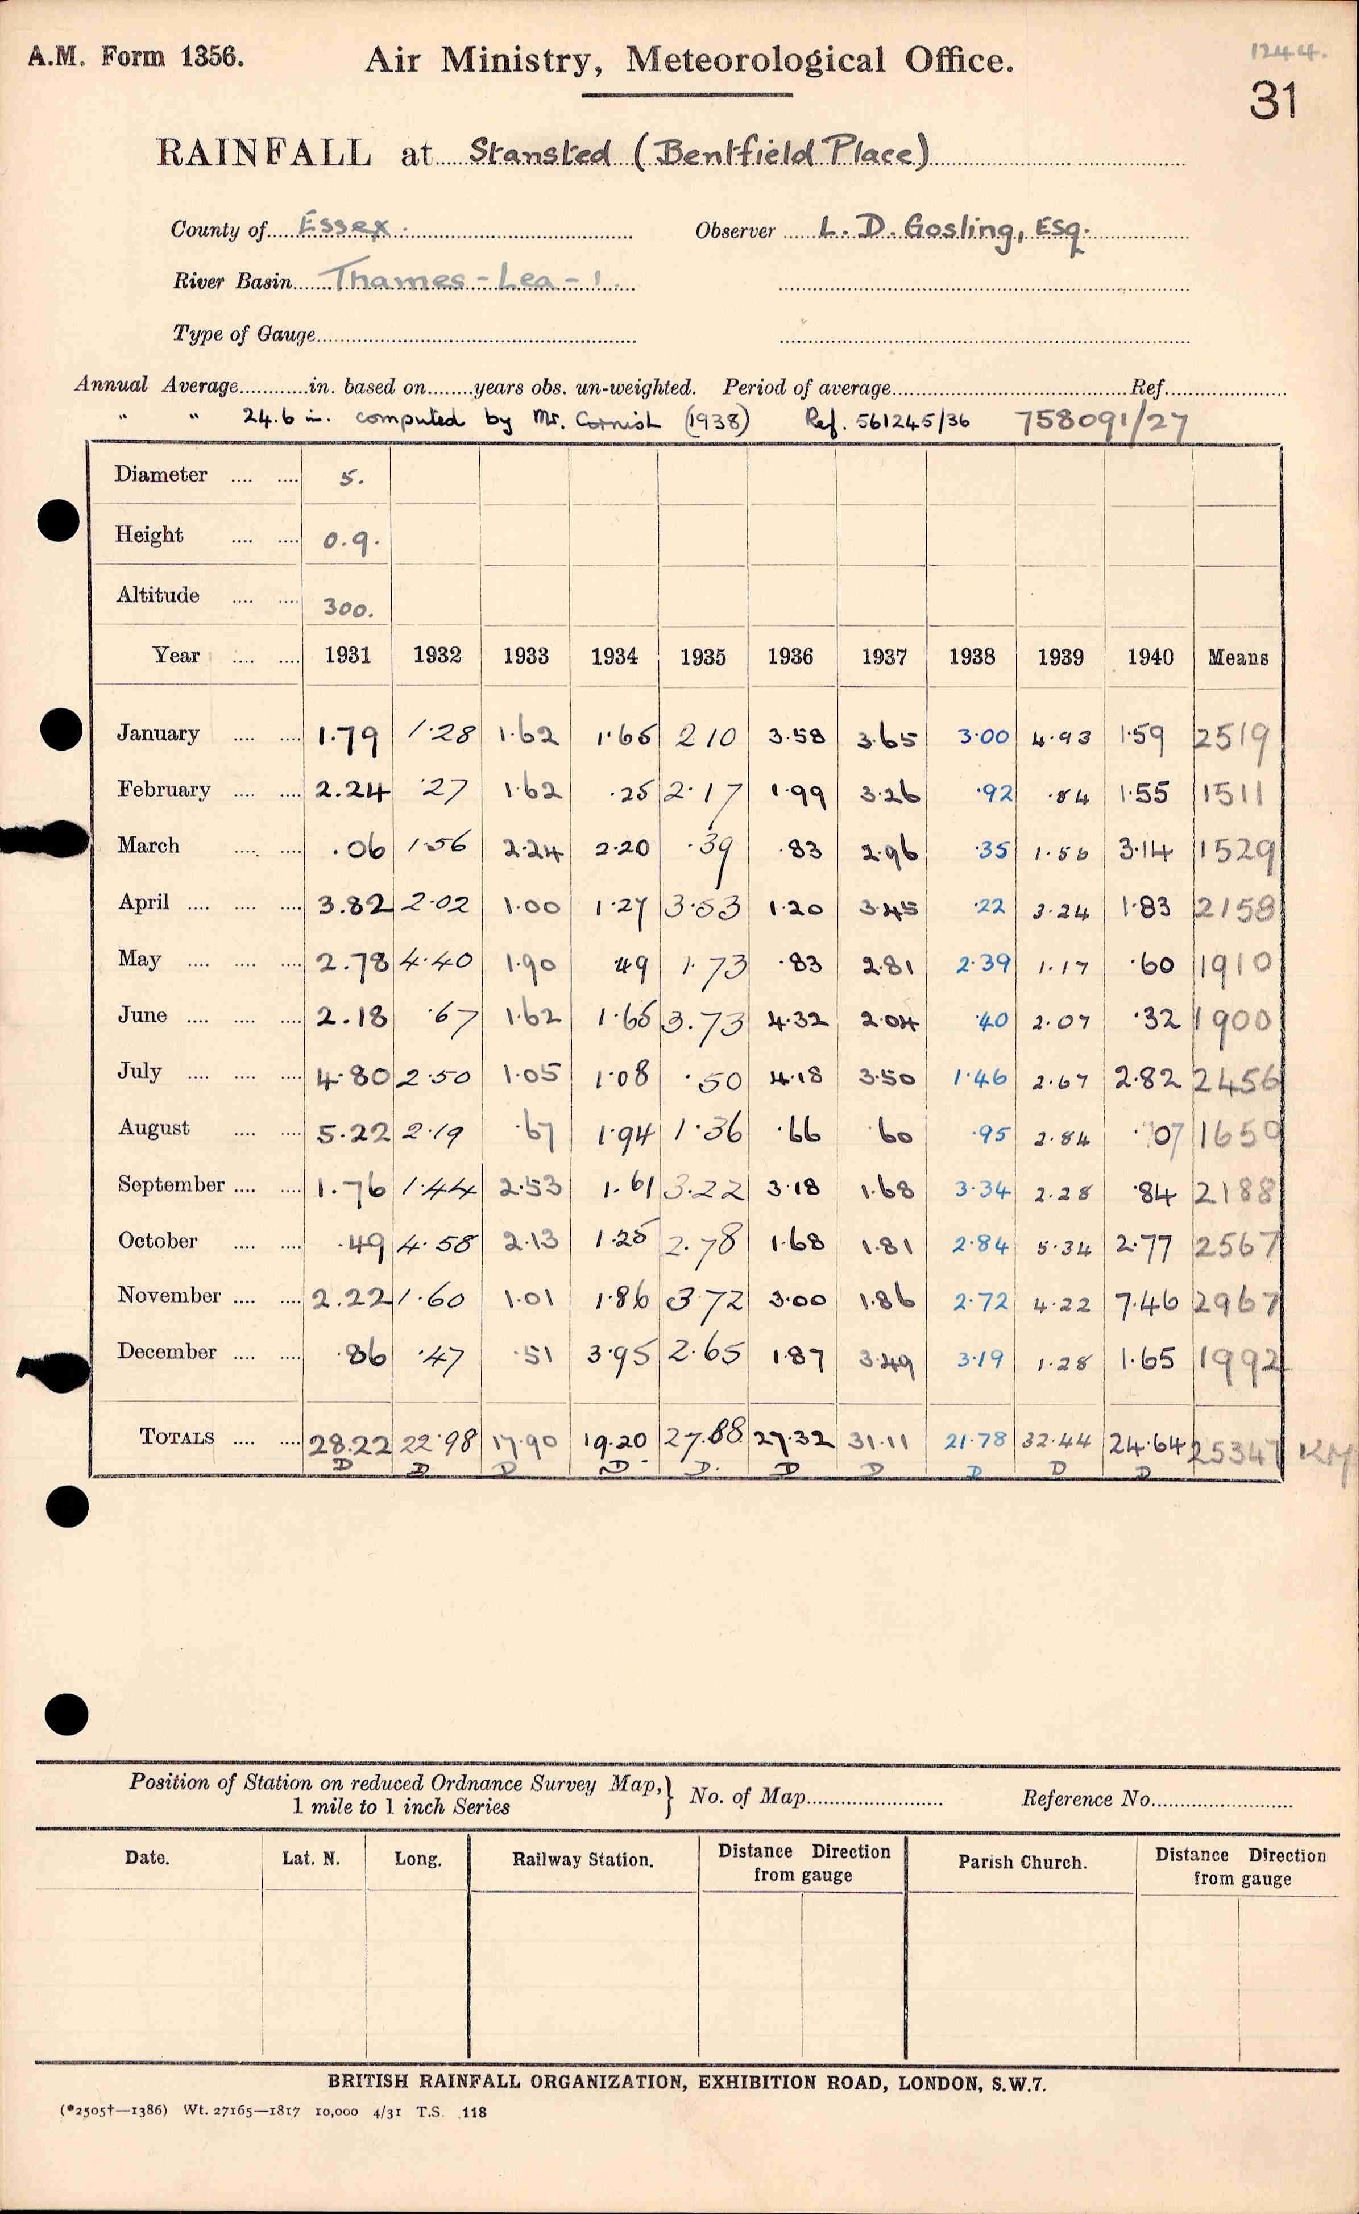 A.M. Form 1356.
Air Ministry, Meteorological Office.
1244.
31
RAINFALL at Stansted (Bentfield Place)
County of Essex. Observer L. D. Gosling, Esq.
River Basin Thames - Lea - 1
Type of Gauge
Annual Average in. based on years obs. un-weighted. Period of average Ref.
" " 24.6 in. computed by Mr. Cornish (1938) Ref. 561245/36 758091/27
Diameter 5.
Height 0.9.
Altitude 300.
Year 1931 1932 1933 1934 1935 1936 1937 1938 1939 1940 Means
January 1.79 1.28 1.62 1.65 2 10 3.58 3.65 3.00 4.93 1.59 2519
February 2.24 .27 1.62 .25 2.17 1.99 3.26 .92 .84 1.55 1511
March .06 1.56 2.24 2.20 .39 .83 2.96 .35 1.56 3.14 1529
April 3.82 2.02 1.00 1.27 3.53 1.20 3.45 .22 3.24 1.83 2158
May 2.78 4.40 1.90 .49 1.73 .83 2.81 2.39 1.17 .60 1910
June 2.18 .67 1.62 1.65 3.73 4.32 2.04 .40 2.07 .32 1900
July 4.80 2.50 1.05 1.08 .50 4.18 3.50 1.46 2.67 2.82 2456
August 5.22 2.19 .67 1.94 1.36 .66 .60 .95 2.84 .07 1650
September 1.76 1.44 2.53 1.61 3.22 3.18 1.68 3.34 2.28 .84 2188
October .49 4.58 2.13 1.25 2.78 1.68 1.81 2.84 5.34 2.77 2567
November 2.22 1.60 1.01 1.86 3.72 3.00 1.86 2.72 4.22 7.46 2967
December .86 .47 .51 3.95 2.65 1.87 3.49 3.19 1.28 1.65 1992
TOTALS 28.22 22.98 17.90 19.20 27.88 27.32 31.11 21.78 32.44 24.64 25347
D D D D D. D D D D D
Position of Station on reduced Ordnance Survey Map, 1 mile to 1 inch Series } No. of Map Reference No.
Date. Lat. N. Long. Railway Station. Distance Direction from gauge Parish Church. Distance Direction from gauge
BRITISH RAINFALL ORGANIZATION, EXHIBITION ROAD, LONDON, S.W.7.
(*2505†—1386) Wt. 27165—1817 10,000 4/31 T.S. 118